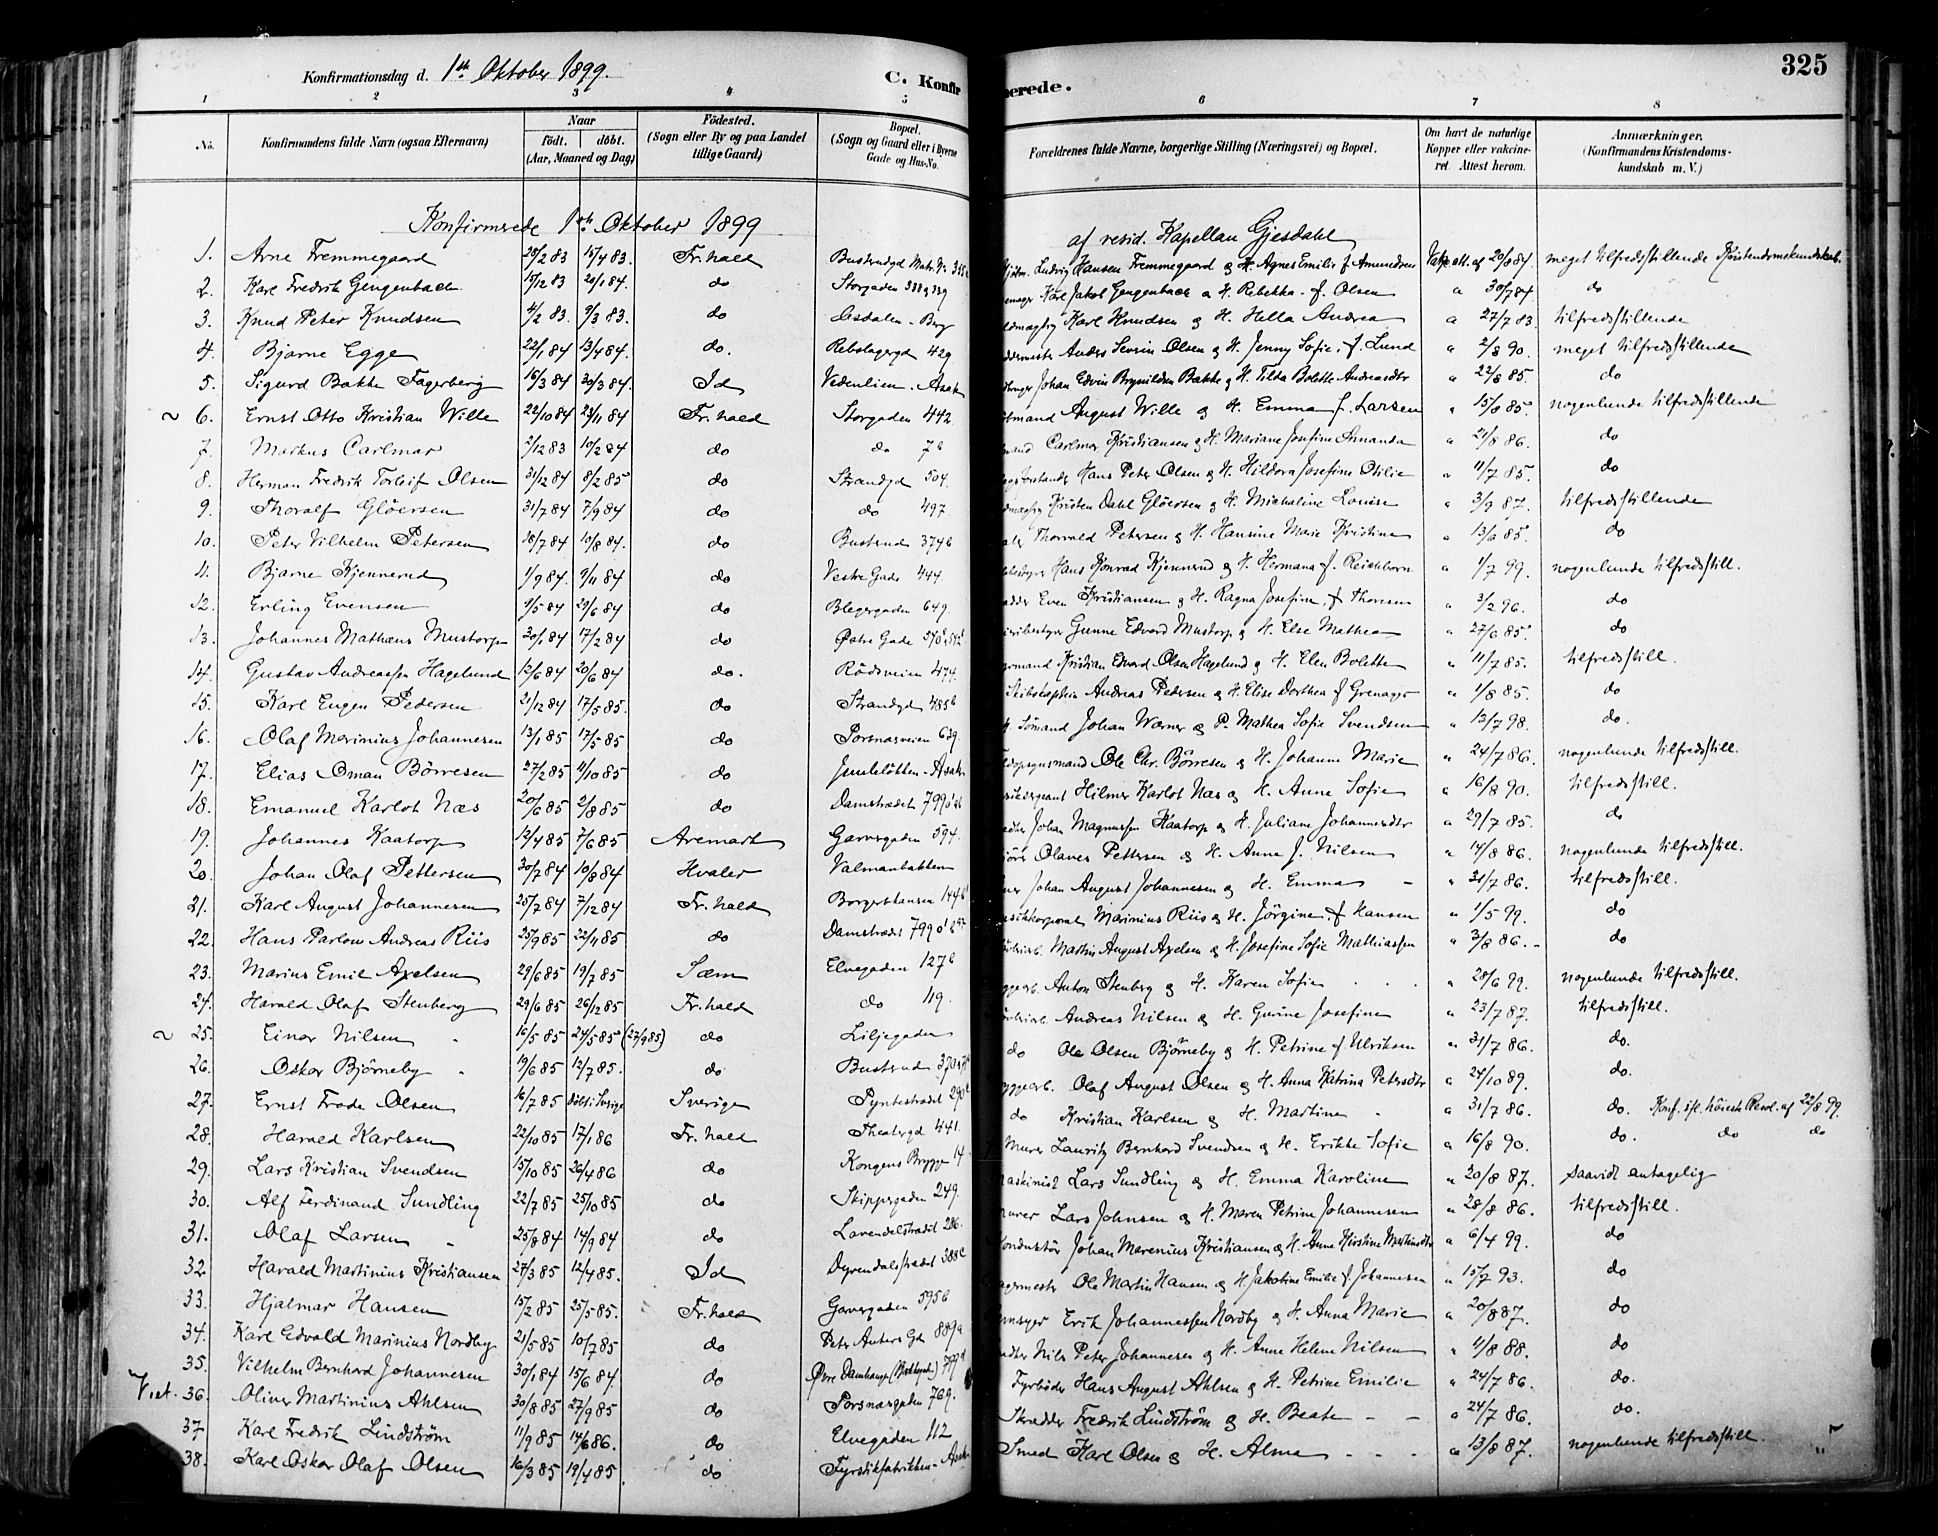 325
Konfirmationsdag d. 1th Oktober 1899.
C. Konfir merede.
1 2 3 4 5 6 7 8
No. Konfirmandens fulde Navn (ogsaa Efternavn) Naar födt. döbt. (Aar, Maaned og Dag) Födested. (Sogn eller By og paa Landet tillige Gaard) Bopæl. (Sogn og Gaard eller i Byerne Gade og Hus-No. Forældrenes fulde Navne, borgerlige Stilling (Næringsvei) og Bopæl. Om havt de naturlige Kopper eller vakcineret. Attest herom. Anmærkninger. (Konfirmandens Kristendomskundskab m. V.)
Konfirmerede 1th Oktober 1899 af resid. Kapellan Gjesdahl
1. Arne Fremmegaard 20/2 83 15/4 83. Fr.hald Ludvig Hansen Fremmegaard & H. Agnes Emilie f. Amundsen 20/8 84. meget tilfredsstillende Kristendomskundskab.
2. Karl Fredrik Gengenbach 15/12 83 20/1 84. do Storgaden 338 & 339 Karl Jakob Gengenbach & H. Rebekka f. Olsen " 30/7 84 do
3. Knud Peter Knudsen 4/2 83. 9/3 83. do Berg Karl Knudsen & H. Hella Andrea " 27/7 83. tilfredsstillende
4. Bjarne Egge 22/1 84 13/4 84. do. Rebslagergd 429 Anders Severin Olsen & H. Jenny Sofie, f. Lund " 2/8 90. meget tilfredsstillende
5. Sigurd Bakke Fagerberg 16/3 84 30/3 84. Id Vedenlien. Asak Johan Edvin Brynildsen Bakke & H. Tilda Bolette Andreasdtr " 22/8 85. do
6. Ernst Otto Kristian Wille 22/10 84 23/11 84 Fr.hald Storgaden 442 August Wille & H. Emma f. Larsen " 15/8 85. nogenlunde tilfredsstillende
7. Markus Carlmar 2/12 83 10/2 84 do do 7b Carlmar Kristiansen & H. Mariane Josefine Amanda " 21/8 86. do
8. Herman Fredrik Torleif Olsen 31/12 84 8/2 85 do Strandgd 504. Hans Peter Olsen & H. Hildora Josefine Otilie " 11/7 85. do
9. Thoralf Glöersen 31/7 84 7/9 84 do do 497. Kristen Dahl Glöersen & H. Michaline Louise " 3/9 87. tilfredsstillende
10. Peter Vilhelm Petersen 18/7 84 10/8 84. do Busterud 374b Thorvald Petersen & H. Hansine Marie Kristine " 13/6 85. do
11. Bjarne Kjennerud 1/9 84. 9/11 84 do Vestre Gade 444. Hans Konrad Kjennerud & H. Hermana f. Reichborn " 1/7 99. nogenlunde tilfredsstill.
12. Erling Evensen 9/5 84 29/6 84 do Blegergaden 649. Even Kristiansen & H. Ragna Josefine, f. Thoresen " 3/2 96. do
13. Johannes Mathæus Mustorp 20/1 84 17/2 84 do Østre Gade Gunne Edvard Mustorp & H. Else Mathea " 27/6 85. do
14. Gustav Andreassen Hagelund 12/6 84 20/6 84 do. Rödsveien 474. Kristian Edvard Olsen Hagelund & H. Elen Bolette " 11/7 85. tilfredsstill.
15. Karl Eugen Pedersen 21/12 84 17/5 85. do Strandgd 485b Skibskaptein Andreas Pedersen & H. Elise Dorthea f Grenager " 1/8 85. do
16. Olaf Marinius Johannesen 13/1 85 17/5 85 do Porsnæsveien 639 Sömand Johan Warner & P. Mathea Sofie Svendsen " 13/7 98. do.
17. Elias Oman Börresen 27/2 85 11/10 85 do Asak Ole Chr. Börresen & H. Johanne Marie " 24/7 86. nogenlunde tilfredsstill.
18. Emanuel Karlot Næs 20/6 85 2/8 85 do Damstrædet Hilmer Karlot Næs & H. Anne Sofie " 16/8 90. tilfredsstill.
19. Johannes Kaatorp 12/4 85 7/6 85 Aremark Garvergaden 594. Johan Magnussen Kaatorp & H. Juliane Johannesdtr " 29/7 85. do
20. Johan Olaf Pettersen 30/7 84 10/8 84 Hvaler Valmanbakken Olaves Pettersen & H. Anne J. Nilsen " 14/8 86. nogenlunde tilfredsstill.
21. Karl August Johannesen 25/7 84 7/12 84 Fr.hald Johan August Johannesen & H. Emma " 31/7 86. tilfredsstill.
22. Hans Parlow Andreas Riis 25/9 85 22/11 85 do Damstrædet Marinius Riis & H. Jörgine, f Hansen " 1/5 99. do
23. Marius Emil Axelsen 29/6 85 19/7 85 Sæm Elvegaden 127b Martin August Axelsen & H. Josefine Sofie Mathiassen " 3/8 86. do
24. Harald Olaf Stenberg 29/6 85 26/12 85 Fr.hald do 119. Anton Stenberg & H. Karen Sofie " 28/6 99. nogenlunde tilfredsstill.
25. Einar Nilsen 16/5 85 24/5 85 (27/9 85) do Liljegaden Andreas Nilsen & H. Gurine Josefine " 23/7 87. tilfredsstill.
26. Oskar Björneby 19/6 85 12/7 85. do Busterud do Ole Olsen Björneby & H. Petrine f Ulriksen " 31/7 86. do.
27. Ernst Frode Olsen 16/7 85 döbt i Sverige Sverige Pyntestrædet 290 Olaf August Olsen & H. Anna Katrina Petersdtr " 24/10 89. do.
28. Harald Karlsen 22/10 85 17/1 86 Fr.hald Theatergd 441. do Kristian Karlsen & H. Martine " 31/7 86. do. Konf. ifl. Resol. af 22/8 99.
29. Lars Kristian Svendsen 15/10 85 26/4 86 do Kongens Brygge 14 Murer Lauritz Bernhard Svendsen & H. Erikke Sofie " 16/8 90. do. do do
30. Alf Ferdinand Sundling 22/7 85 25/10 85 do Skippergaden 249. Lars Sundling & H. Emma Karoline " 20/8 87. saavidt antagelig
31. Olaf Larsen 25/8 84 14/9 84 do Lavendelstrædet 286. Lars Johnsen & H. Maren Petrine Johannesen " 28/8 86. tilfredsstill.
32 Harald Martinius Kristiansen 27/3 85 12/4 85. Id Dyrendalsstrædet 388c Johan Marenius Kristiansen & H. Anne Kirstine Martinsdtr " 6/4 99. do
33. Hjalmar Hansen 15/2 85 25/5 85. Fr.hald Garvergaden 595b Ole Martin Hansen & H. Jakobine Emilie f. Johannesen " 15/7 93. do
34. Karl Edvald Marinius Nordby 21/5 85 10/7 85 do Peter Ankers Gd 889a Erik Johannessen Nordby & H. Anna Marie " 20/8 87. do
35. Vilhelm Bernhard Johannesen 30/1 84 15/6 84. do Nils Peter Johannesen & H. Anne Helene Nilsen " 11/8 88. do
36. Oliver Martinius Ahlsen 30/8 85 27/9 85 do Porsnæsgaden 769. Fyrböder Hans August Ahlsen & H. Petrine Emilie " 24/7 86. do.
37 Karl Fredrik Lindström 11/9 85 14/6 86. do Elvegaden 112 Skrædder Fredrik Lindström & H. Beate " 24/7 86. do.
38. Karl Oskar Olaf Olsen 16/3 85 19/4 85. do Fyrstikfabrikken - Asak Smed Karl Olsen & H. Alma " 13/8 87. nogenlunde tilfredsstill.